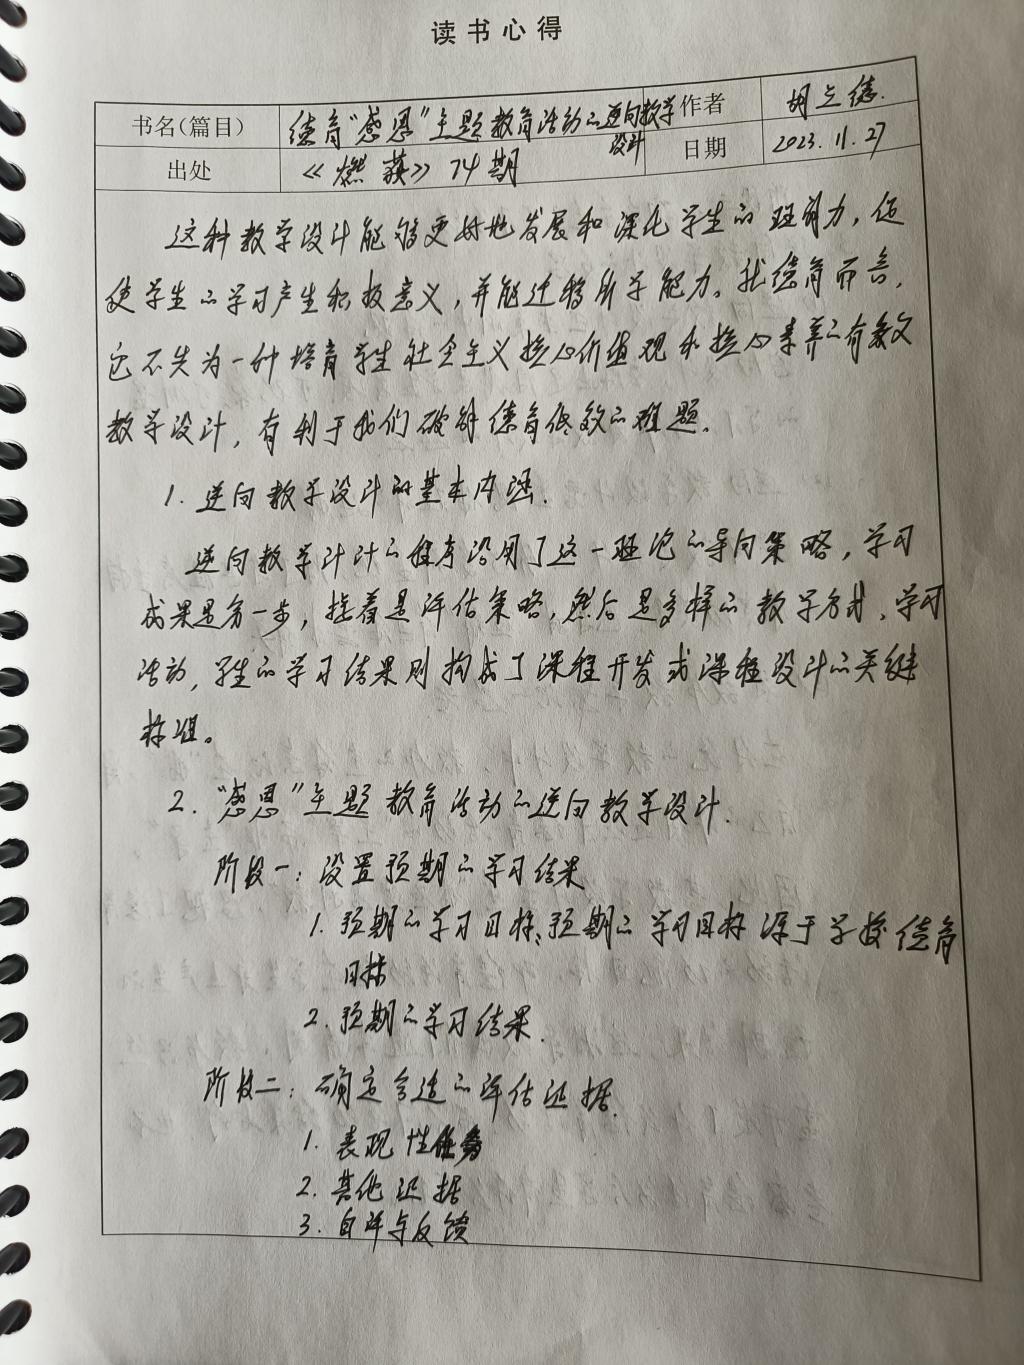 读书心得
书名(篇目) 德育“感恩”主题教育活动的逆向教学设计 作者 胡立德.
出处 《燃荻》74期 日期 2023.11.27
这种教学设计能够更好地发展和深化学生的理解力,促
使学生的学习产生积极意义,并能迁移所学能力。就德育而言,
它不失为一种培育学生社会主义核心价值观和核心素养的有效
教学设计,有利于我们破解德育低效的难题。
1. 逆向教学设计的基本内涵.
逆向教学计计的程序沿用了这一理论的导向策略,学习
成果是第一步,接着是评估策略,然后是多样的教学方式、学习
活动,学生的学习结果则构成了课程开发或课程设计的关键
标准。
2.“感恩”主题教育活动的逆向教学设计.
阶段一:设置预期的学习结果
1. 预期的学习目标:预期的学习目标源于学校德育
目标
2. 预期的学习结果.
阶段二:确定合适的评估证据.
1. 表现性任务
2. 其他证据
3. 自评与反馈